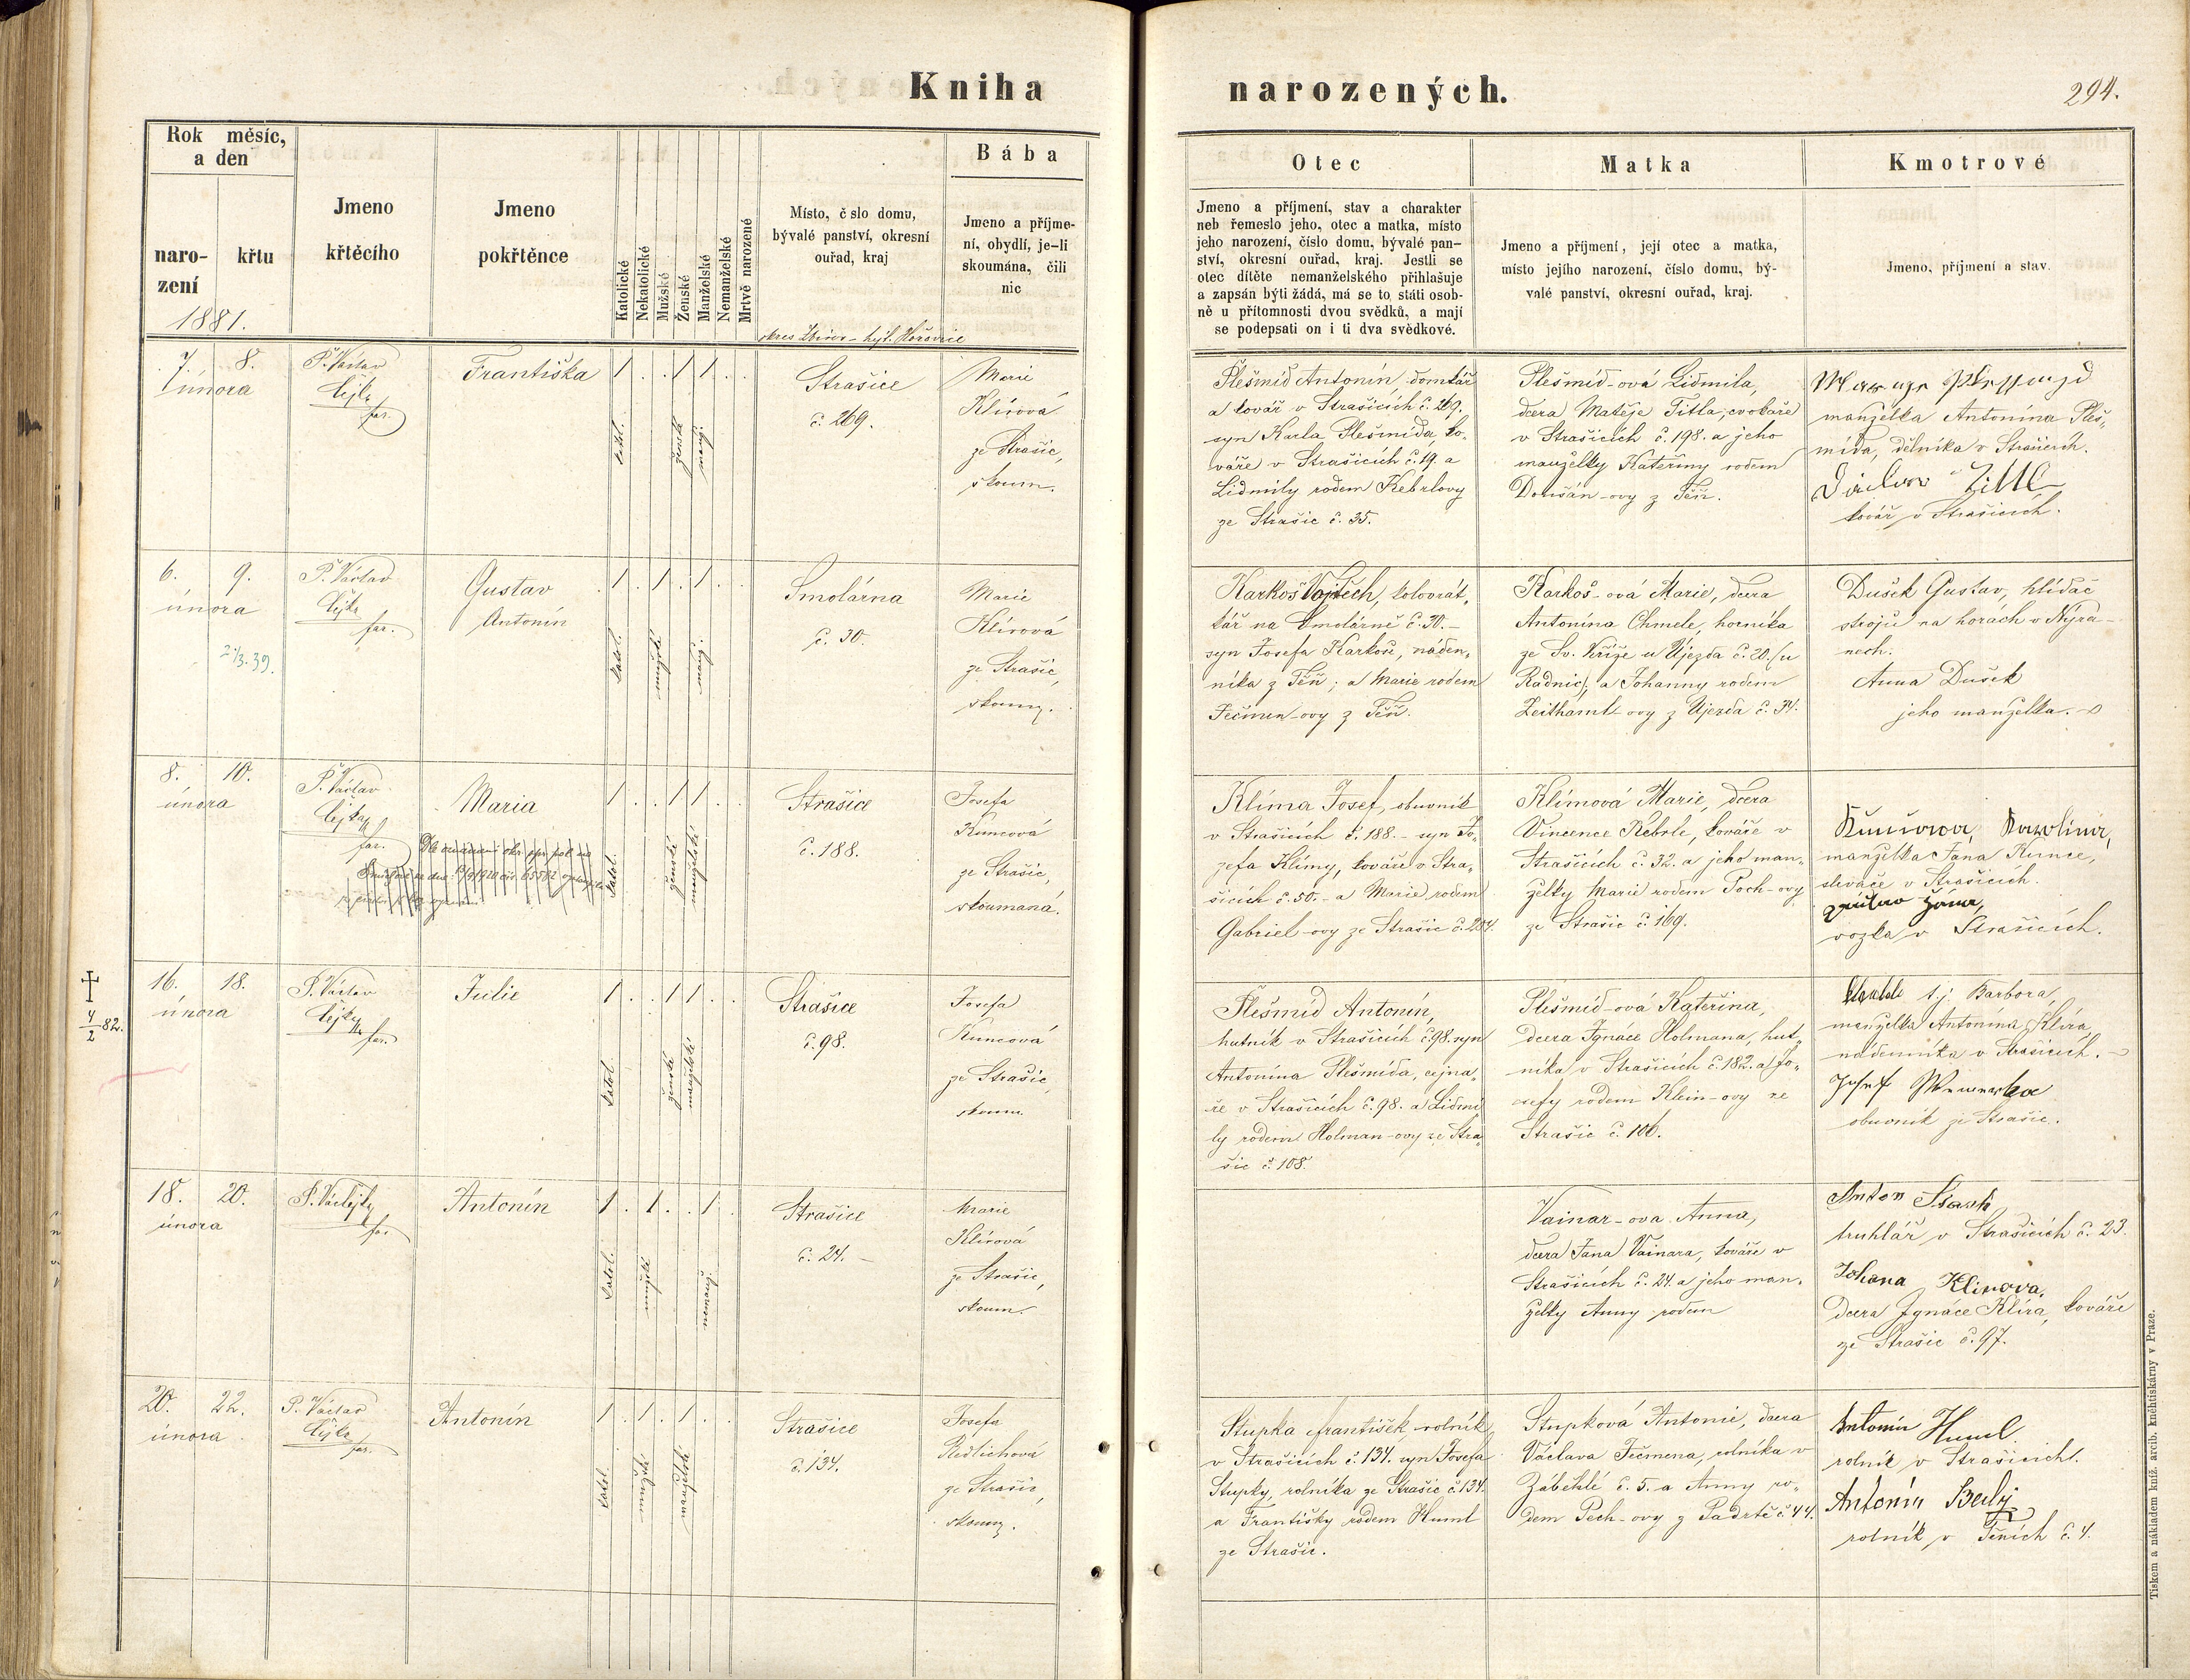 Kniha narozených.
294.
Rok měsíc,
a den
naro-
zení
křtu
1881.
Jmeno
křtěcího
Jmeno
pokřtěnce
Katolické
Nekatolické
Mužské
Ženské
Manželské
Nemanželské
Mrtvě narozené
Místo, č slo domu,
bývalé panství, okresní
ouřad, kraj
Bába
Jmeno a příjme-
ní, obydlí, je-li
skoumána, čili
nic
Otec
Jmeno a příjmení, stav a charakter
neb řemeslo jeho, otec a matka, místo
jeho narození, číslo domu, bývalé pan-
ství, okresní ouřad, kraj. Jestli se
otec dítěte nemanželského přihlašuje
a zapsán býti žádá, má se to státi osob-
ně u přítomnosti dvou svědků, a mají
se podepsati on i ti dva svědkové.
Matka
Jmeno a příjmení, její otec a matka,
místo jejího narození, číslo domu, bý-
valé panství, okresní ouřad, kraj.
Kmotrové
Jmeno, příjmení a stav.
7. 8.
února
P. Václav
far.
Františka
1 . . 1 1 . .
katol.
ženské
manž.
Strašice
č. 269.
Marie
Klírová
ze Strašic,
skoum.
Plešmíd Antonín, domkář
a kovář v Strašicích č. 269.
syn Karla Plešmída, ko-
váře v Strašicích č. 19. a
Lidmily rodem Kebrlovy
ze Strašic č. 35.
Plešmíd-ová Lidmila,
dcera Matěje Titla, cvokaře
v Strašicích č. 198. a jeho
manželky Kateřiny rodem
z Těň.
manželka Antonína Pleš-
mída, dělníka v Strašicích.
kovář v Strašicích.
6. 9.
února
P. Václav
far.
Gustav
Antonín
1 . 1 . 1 . .
katol.
mužské
manž.
Smolárna
č. 30.
Marie
Klírová
ze Strašic,
skoum.
Karkoš Vojtěch, kolovrát-
kář na Smolárně č. 30. -
syn Josefa Karkoše, náden-
níka z Těň; a Marie rodem
Ječmen-ovy z Těň.
Karkoš-ová Marie, dcera
Antonína Chmele, horníka
ze Sv. Kříže u Újezda č. 20. (u
Radnic), a Johanny rodem
Zeithaml-ovy z Újezda č. 34.
Dušek Gustav, hlídač
strojů na horách v Nýřa-
nech.
Anna Dušek
jeho manželka.
8. 10.
února
P. Václav
far.
Maria
1 . . 1 1 . .
katol.
ženské
manželské
Strašice
č. 188.
Josefa
Kuncová
ze Strašic,
skoumaná.
Klíma Josef, obuvník
v Strašicích č. 188. - syn Jo-
zefa Klímy, kováře v Stra-
šicích č. 50. - a Marie rodem
Gabriel-ovy ze Strašic č. 204.
Klímová Marie, dcera
Vincence Kebrle, kováře v
Strašicích č. 32. a jeho man-
želky Marie rodem Poch-ovy
ze Strašic č. 169.
Kuncova, Karolina,
manželka Jana Kunce,
slévače v Strašicích.
vozka v Strašicích.
4/2 82.
16. 18.
února
P. Václav
far.
Julie
1 . . 1 1 . .
katol.
ženské
manželské
Strašice
č. 98.
Josefa
Kuncová
ze Strašic,
skoum.
Plešmíd Antonín,
hutník v Strašicích č. 98. syn
Antonína Plešmída,
v Strašicích č. 98. a Lidmi-
ly rodem Holman-ovy ze Stra-
šic č. 108.
Plešmíd-ová Kateřina,
dcera Ignáce Holmana, hut-
níka v Strašicích č. 182. a Jo-
sefy rodem Klein-ovy ze
Strašic č. 106.
t.j. Barbora,
manželka Antonína Klíra,
nádenníka v Strašicích.
Josef
obuvník ze Strašic.
18. 20.
února
far.
Antonín
1 . 1 . . 1 .
katol.
mužské
nemanž.
Strašice
č. 24. -
Marie
Klírová
ze Strašic,
skoum.
Vainar-ova Anna,
dcera Jana Vainara, kováře v
Strašicích č. 24. a jeho man-
želky Anny rodem
Anton
truhlář v Strašicích č. 23.
Johana Klirova,
dcera Ignáce Klíra, kováře
ze Strašic č. 97.
20. 22.
února
P. Václav
far.
Antonín
1 . 1 . 1 . .
katol.
mužské
manželské
Strašice
č. 134.
Josefa
Redlichová
ze Strašic,
skoum.
Stupka František, rolník
v Strašicích č. 134. syn Josefa
Stupky, rolníka ze Strašic č. 134.
a Františky rodem Huml
ze Strašic.
Stupková Antonie, dcera
Václava Ječmena, rolníka v
Záběhlé č. 5. a Anny ro-
dem Pech-ovy z Padrtě č. 44.
Antonín Huml
rolník v Strašicích.
Antonín
rolník v Těních č. 4.
Tiskem a nákladem kníž. arcib. knéhtiskárny v Praze.